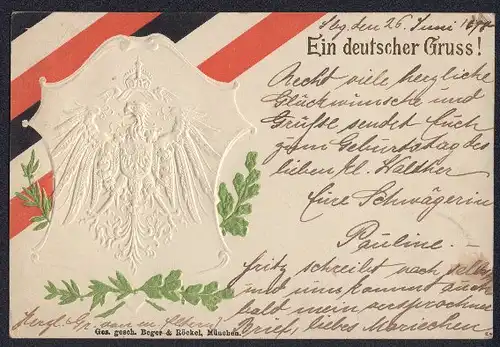 Sbg. den 26. Juni
Ein deutscher Gruss!
Recht viele herzliche
Glückwünsche und
Grüsse sendet Euch
zum Geburtstag des
lieben kl. Walther
Eure Schwägerin
Pauline. —
Fritz schreibt noch selbst
und uns kommt auch
bald mein versprochner
Brief, liebes Mariechen.
Herzl. Gr. an m Eltern!
Ges. gesch. Beger & Röckel, München.